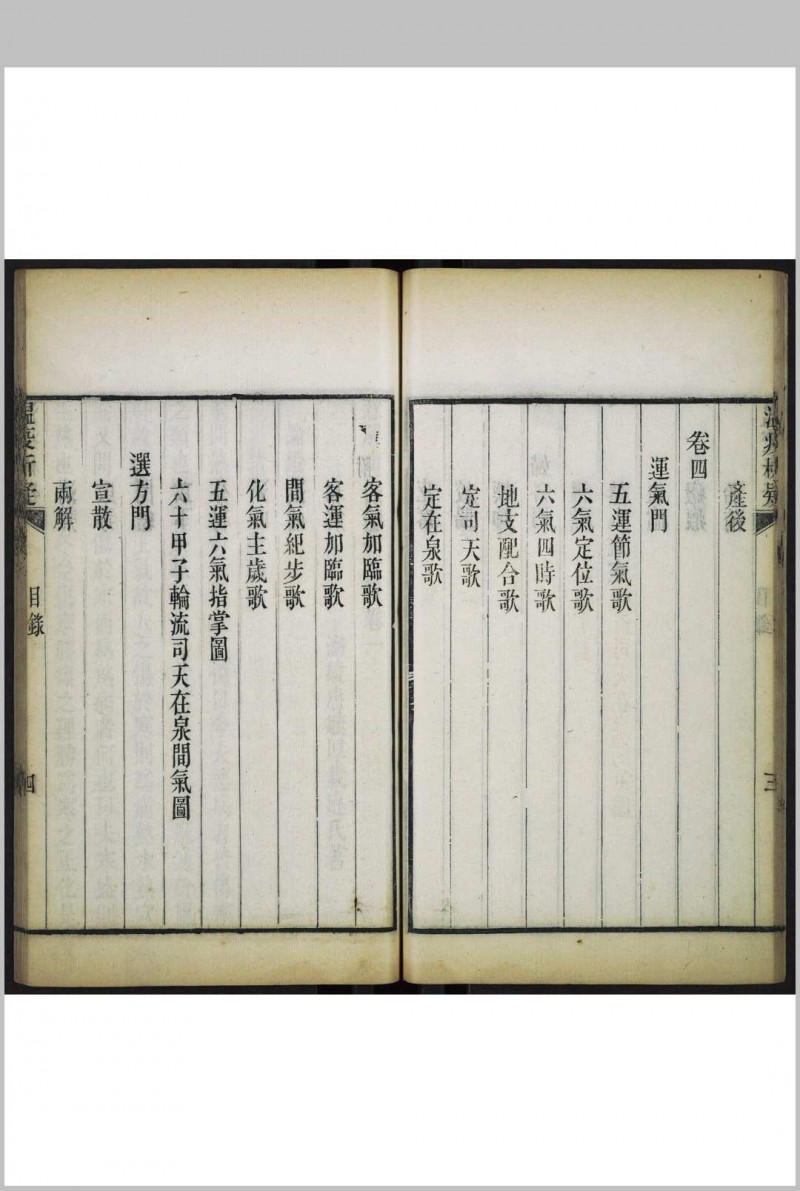 產後
卷四
運氣門
五運節氣歌
六氣定位歌
六氣四時歌
地支配合歌
定司天歌
定在泉歌
三
客氣加臨歌
客運加臨歌
間氣紀步歌
化氣主歲歌
五運六氣指掌圖
六十甲子輪流司天在泉間氣圖
選方門
宣散
兩解
目錄
四